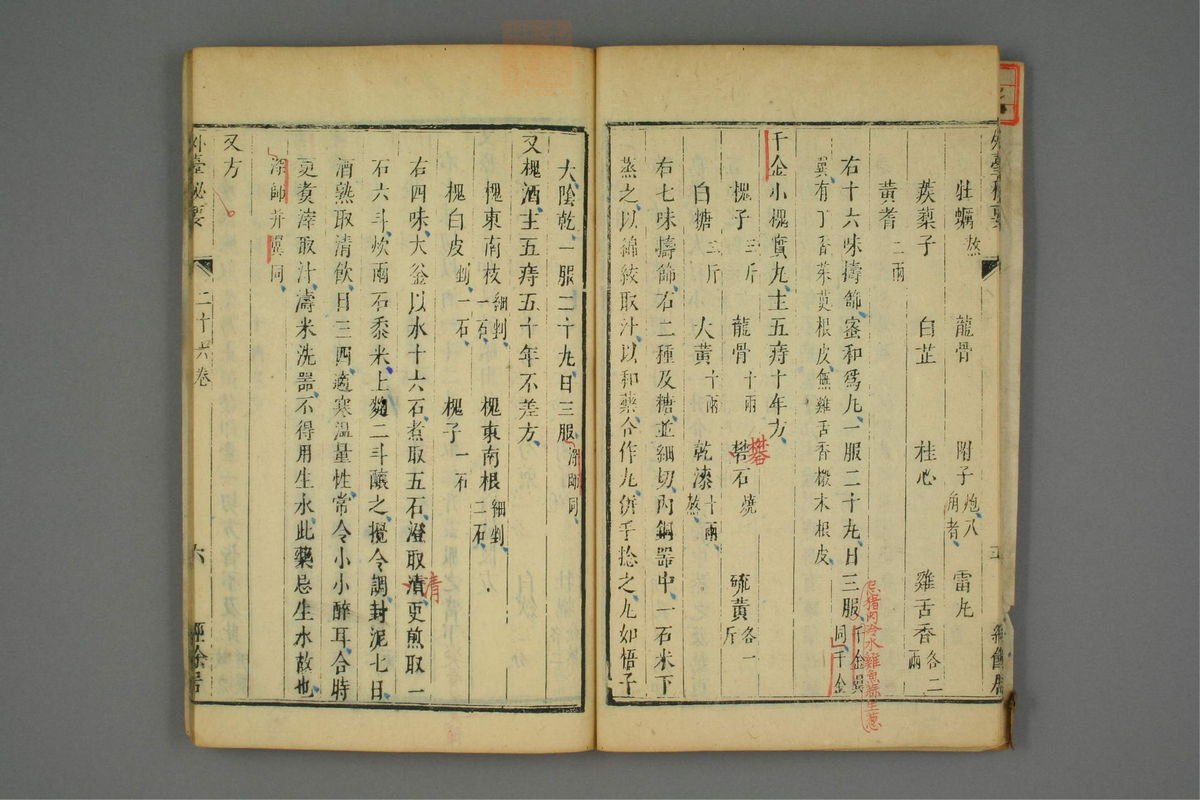 外臺祕要
牡蠣熬 龍骨 附子炮八角者 雷丸
蒺蔾子 白芷 桂心 雞舌香各二兩
黃耆二兩
右十六味擣篩蜜和爲丸一服二十丸日三服千金翼同千金
忌猪肉冷水雞魚蒜生葱
翼有丁香茱萸根皮無雞舌香椴木根皮
千金小槐實丸主五痔十年方
槐子三斤 龍骨十兩 礬石燒 硫黃各一斤
礬
白糖二斤 大黃十兩 乾漆十兩熬
右七味擣篩右二種及糖並細切內銅器中一石米下
蒸之以綿絞取汁以和藥合作丸併手捻之丸如梧子
大陰乾一服二十丸日三服深師同
又槐酒主五痔五十年不差方
槐東南枝細剉一石 槐東南根細剉二石
槐白皮剉一石 槐子一石
右四味大釜以水十六石煮取五石澄取清更煎取一
清
石六斗炊兩石黍米上麴二斗釀之攪令調封泥七日
酒熟取清飲日三四適寒溫量性常令小小醉耳合時
更煑滓取汁濤米洗器不得用生水此藥忌生水故也
深師并翼同
又方
外臺祕要 二十六卷 六 經餘居